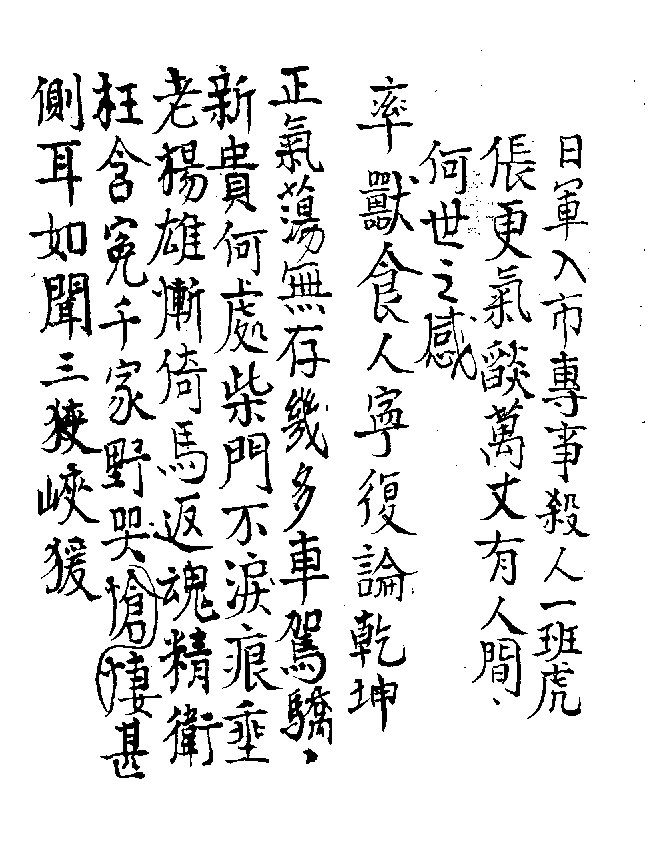 日軍入市專事殺人一班虎
倀更氣燄萬丈有人間、
何世之感
率獸食人寧復論乾坤
正氣蕩無存幾多車駕驕、
新貴何處柴門不淚痕垂
老楊雄慚倚馬返魂精衛
枉含冤千家野哭愴悽甚
側耳如聞三狹峽猨